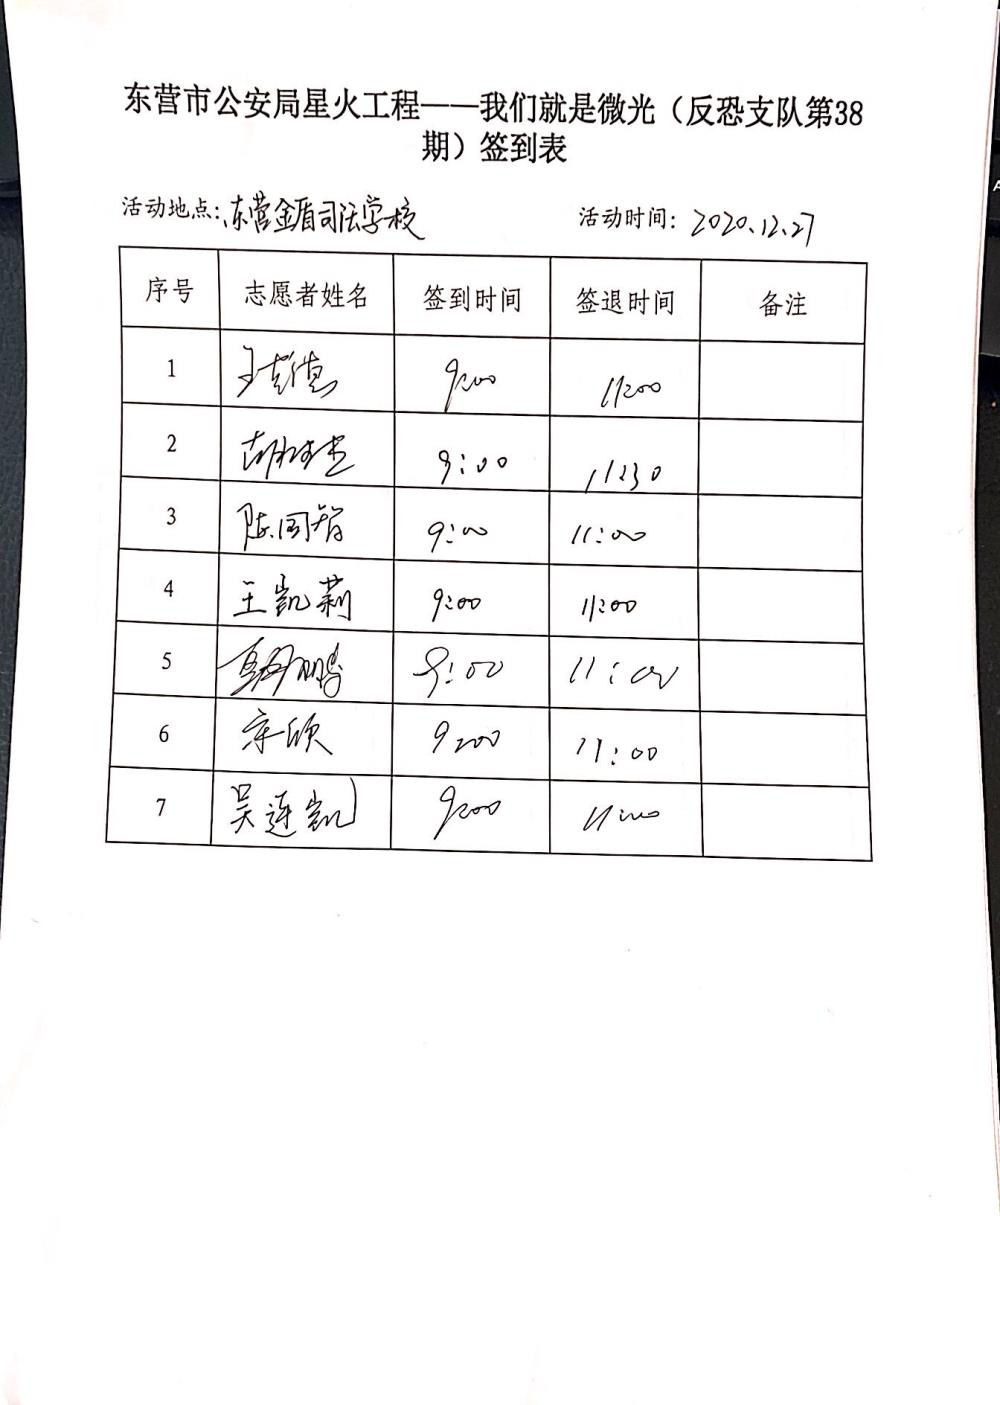 东营市公安局星火工程——我们就是微光（反恐支队第38
期）签到表
活动地点:东营金盾司法学校 活动时间: 2020.12.27
序号 志愿者姓名 签到时间 签退时间 备注
1 9:00 11:00
2 9:00 11:30
3 陈国智 9:00 11:00
4 王凯莉 9:00 11:00
5 9:00 11:00
6 宋欣 9:00 11:00
7 吴连凯 9:00 11:00